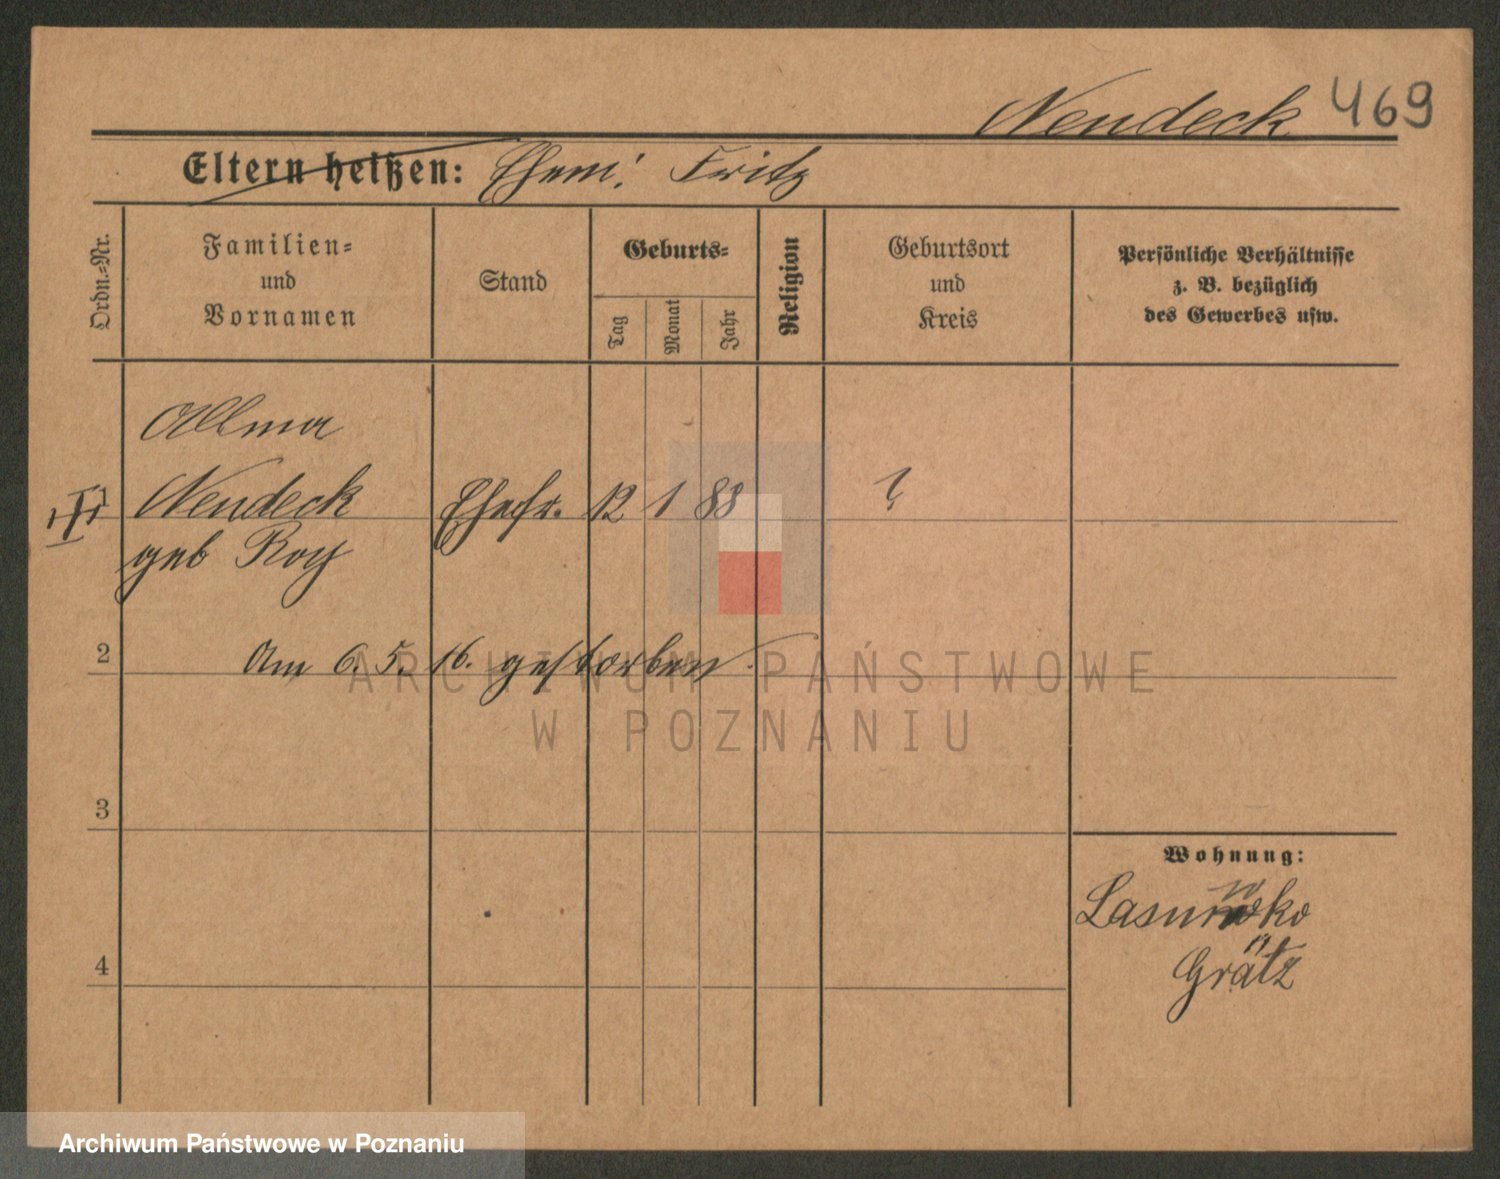 Nendeck 469
Eltern heißen: Ehem: Fritz
Ordn.-Nr.
Familien-
und
Vornamen
Stand
Geburts-
Tag
Monat
Jahr
Religion
Geburtsort
und
Kreis
Persönliche Verhältnisse
z. B. bezüglich
des Gewerbes usw.
Allma
Nendeck Ehefr. 12 1 88 ?
geb Roy
2 Am 6. 5. 16. gestorben.
ARCHIWUM PAŃSTWOWE
W POZNANIU
3
Wohnung:
4
Grätz
Archiwum Państwowe w Poznaniu